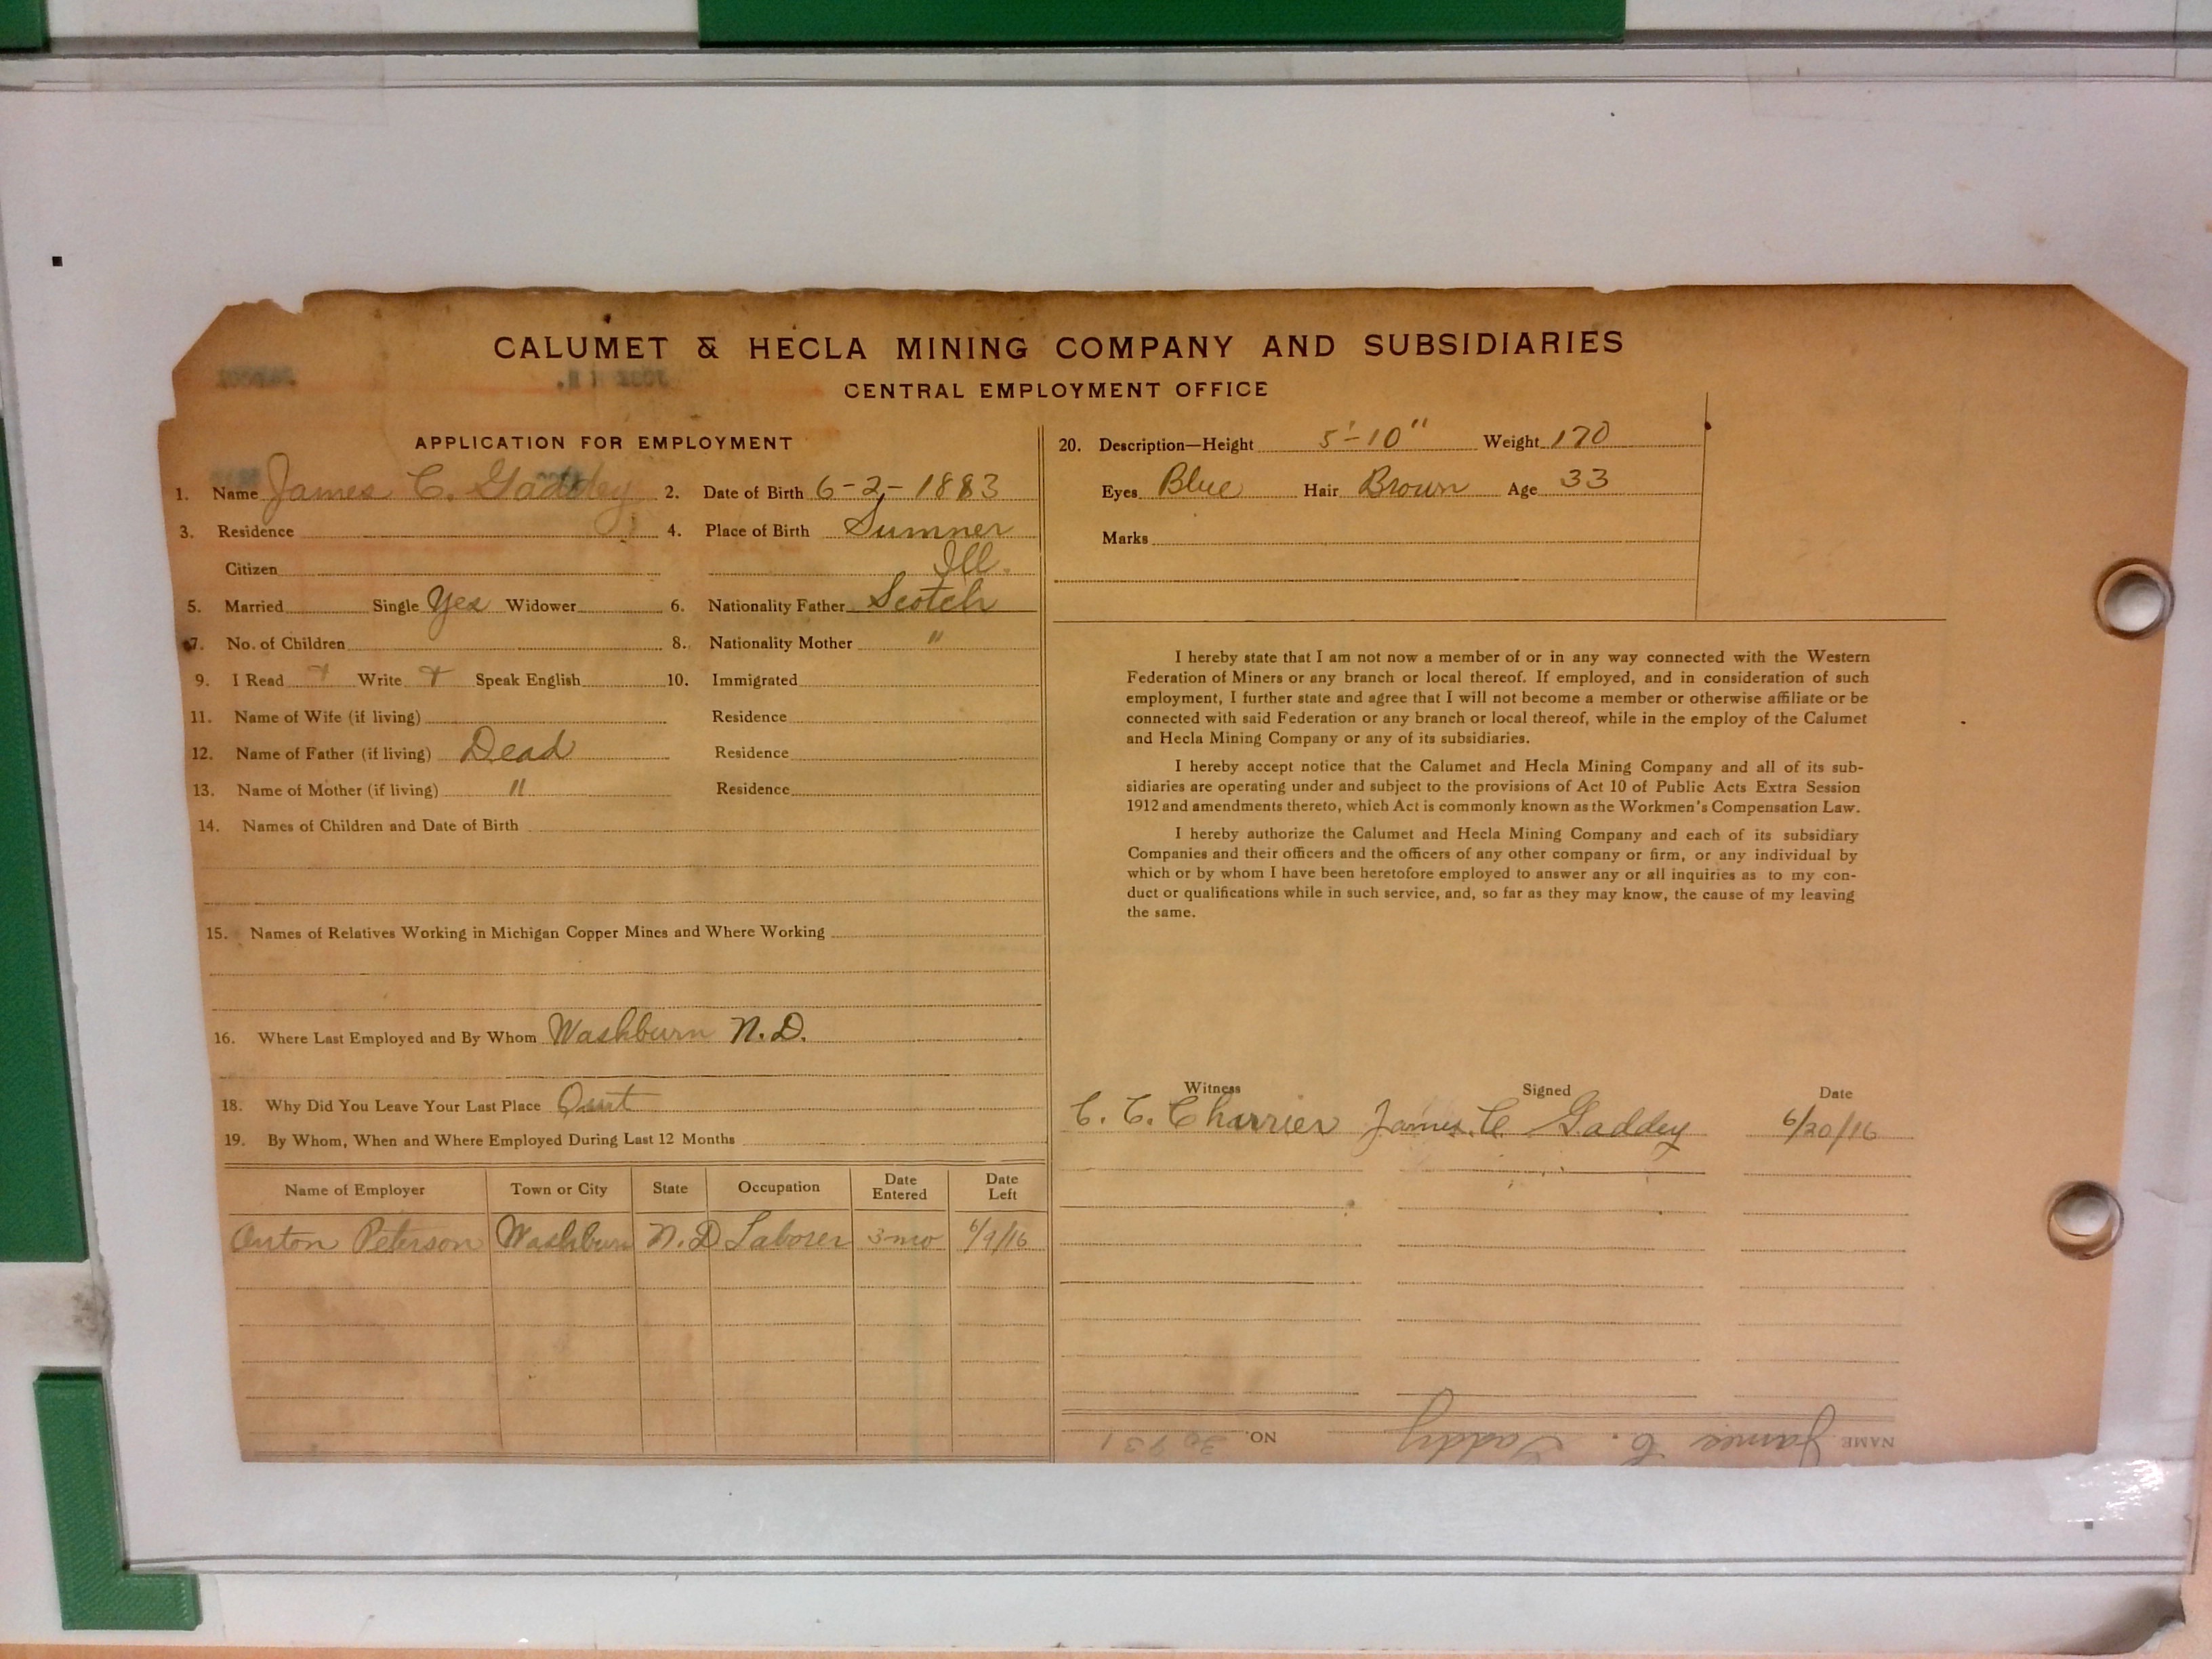 CALUMET & HECLA MINING COMPANY AND SUBSIDIARIES
CENTRAL EMPLOYMENT OFFICE
APPLICATION FOR EMPLOYMENT
1. Name James C. Gaddey 2. Date of Birth 6-2-1883
3. Residence 4. Place of Birth Sumner
Citizen Ill.
5. Married Single Yes Widower 6. Nationality Father Scotch
7. No. of Children 8. Nationality Mother "
9. I Read + Write + Speak English 10. Immigrated
11. Name of Wife (if living) Residence
12. Name of Father (if living) Dead Residence
13. Name of Mother (if living) " Residence
14. Names of Children and Date of Birth
15. Names of Relatives Working in Michigan Copper Mines and Where Working
16. Where Last Employed and By Whom Washburn N.D.
18. Why Did You Leave Your Last Place Quit
19. By Whom, When and Where Employed During Last 12 Months
Name of Employer Town or City State Occupation Date Entered Date Left
Anton Peterson Washburn N.D Laborer 3 mo 6/9/16
20. Description—Height 5'-10" Weight 170
Eyes Blue Hair Brown Age 33
Marks
I hereby state that I am not now a member of or in any way connected with the Western
Federation of Miners or any branch or local thereof. If employed, and in consideration of such
employment, I further state and agree that I will not become a member or otherwise affiliate or be
connected with said Federation or any branch or local thereof, while in the employ of the Calumet
and Hecla Mining Company or any of its subsidiaries.
I hereby accept notice that the Calumet and Hecla Mining Company and all of its sub-
sidiaries are operating under and subject to the provisions of Act 10 of Public Acts Extra Session
1912 and amendments thereto, which Act is commonly known as the Workmen's Compensation Law.
I hereby authorize the Calumet and Hecla Mining Company and each of its subsidiary
Companies and their officers and the officers of any other company or firm, or any individual by
which or by whom I have been heretofore employed to answer any or all inquiries as to my con-
duct or qualifications while in such service, and, so far as they may know, the cause of my leaving
the same.
Witness Signed Date
C. C. Charrier James C Gaddey 6/20/16
NAME James C. Gaddy NO. 30931